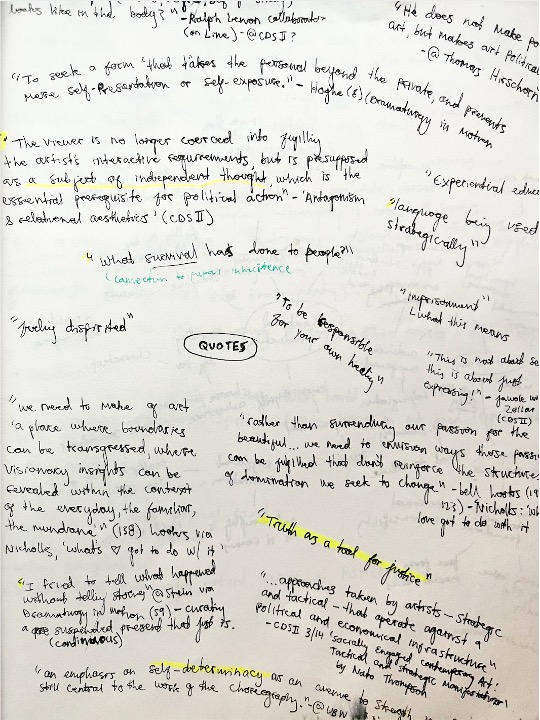 looks like in the body?"
- Ralph Lemon collaborator
(on Line) - @CDS I?
"He does not make po
art, but makes art political
- @ Thomas Hirschorn
"To seek a form 'that takes the personal beyond the private, and prevents
mere self-presentation or self-exposure." - Hoghe (8) (Dramaturgy in Motion
"The viewer is no longer coerced into fulfilling
the artist's interactive requirements, but is presupposed
as a subject of independent thought, which is the
essential prerequisite for political action" - 'Antagonism
& relational aesthetics' (CDS II)
"Experiential educ
"language being used
strategically"
"What survival has done to people?"
(connection to papa's inheritence
"imprisonment"
what this means
"To be responsible
for your own healing"
"feeling dispirited"
QUOTES
"This is not about se
this is about just
expressing!" - Jawole w
Zollar
(CDS II)
"we need to make of art
'a place where boundaries
can be transgressed, where
visionary insights can be
revealed within the context
of the everyday, the familiar,
the mundane'" (138) hooks via
Nicholls, 'what's ♡ got to do w/ it'
"rather than surrendering our passion for the
beautiful... we need to envision ways those passi
can be fulfilled that don't reinforce the structures
of domination we seek to change" - bell hooks (19
123) - Nicholls: 'wh
love got to do with it
"Truth as a tool for justice"
"I tried to tell what happened
without telling stories" @ Stein via
Dramaturgy in Motion (59) - curating
a suspended present that just is.
(continuous)
"...approaches taken by artists - strategic
and tactical - that operate against a
political and economical infrastructure"
- CDS II 3/14 'Socially Engaged Contemporary Art:
Tactical and Strategic Manifestations'
by Nato Thompson
"an emphasis on self-determinacy as an avenue to strength
still central to the work of the choreography." - @ UBW